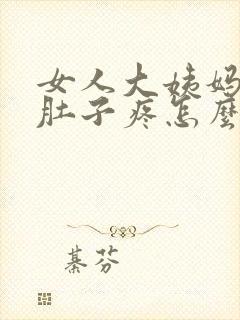 女人大姨妈
肚子疼怎麼
綦芬